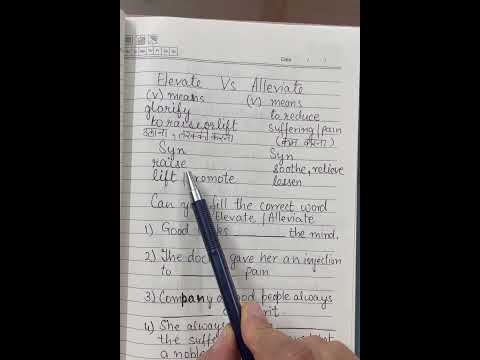 Date / /
Elevate Vs Alleviate
(v) means (v) means
glorify to reduce
to raise or lift suffering/pain
उठाना, तरक्की करना (कम करना)
Syn Syn
raise soothe, relieve
lift lessen
Can fill the correct word
Elevate / Alleviate
1) Good ______ the mind.
2) The gave her an injection
to ______ pain
3) Company good people always
4) She
the
a